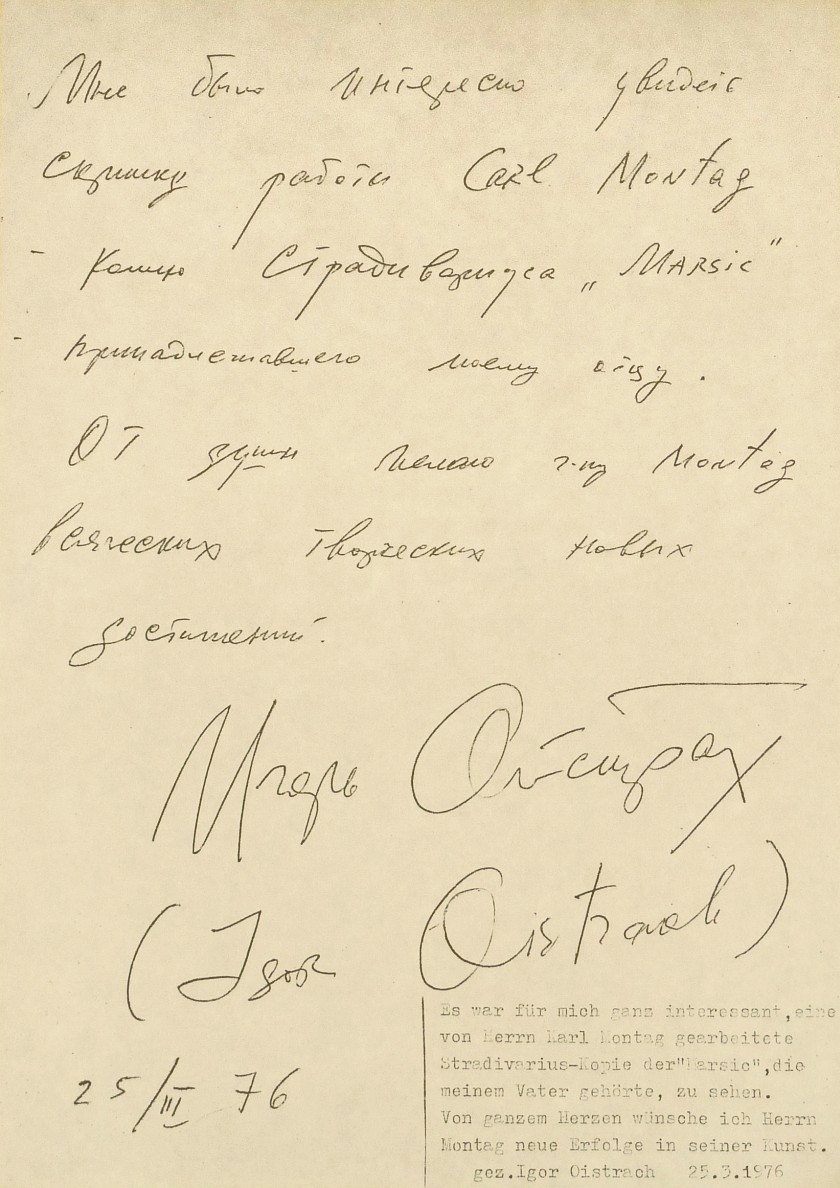 Мне было интересно увидеть
скрипку работы Carl Montag
- копию Страдивариуса „Marsic"
- принадлежавшего моему отцу.
От души желаю г-ну Montag
всяческих творческих новых
достижений.
Игорь Ойстрах
(Igor Oistrach)
25/III 76
Es war für mich ganz interessant,eine
von Herrn Karl Montag gearbeitete
Stradivarius-Kopie der"Marsic",die
meinem Vater gehörte, zu sehen.
Von ganzem Herzen wünsche ich Herrn
Montag neue Erfolge in seiner Kunst.
gez.Igor Oistrach 25.3.1976